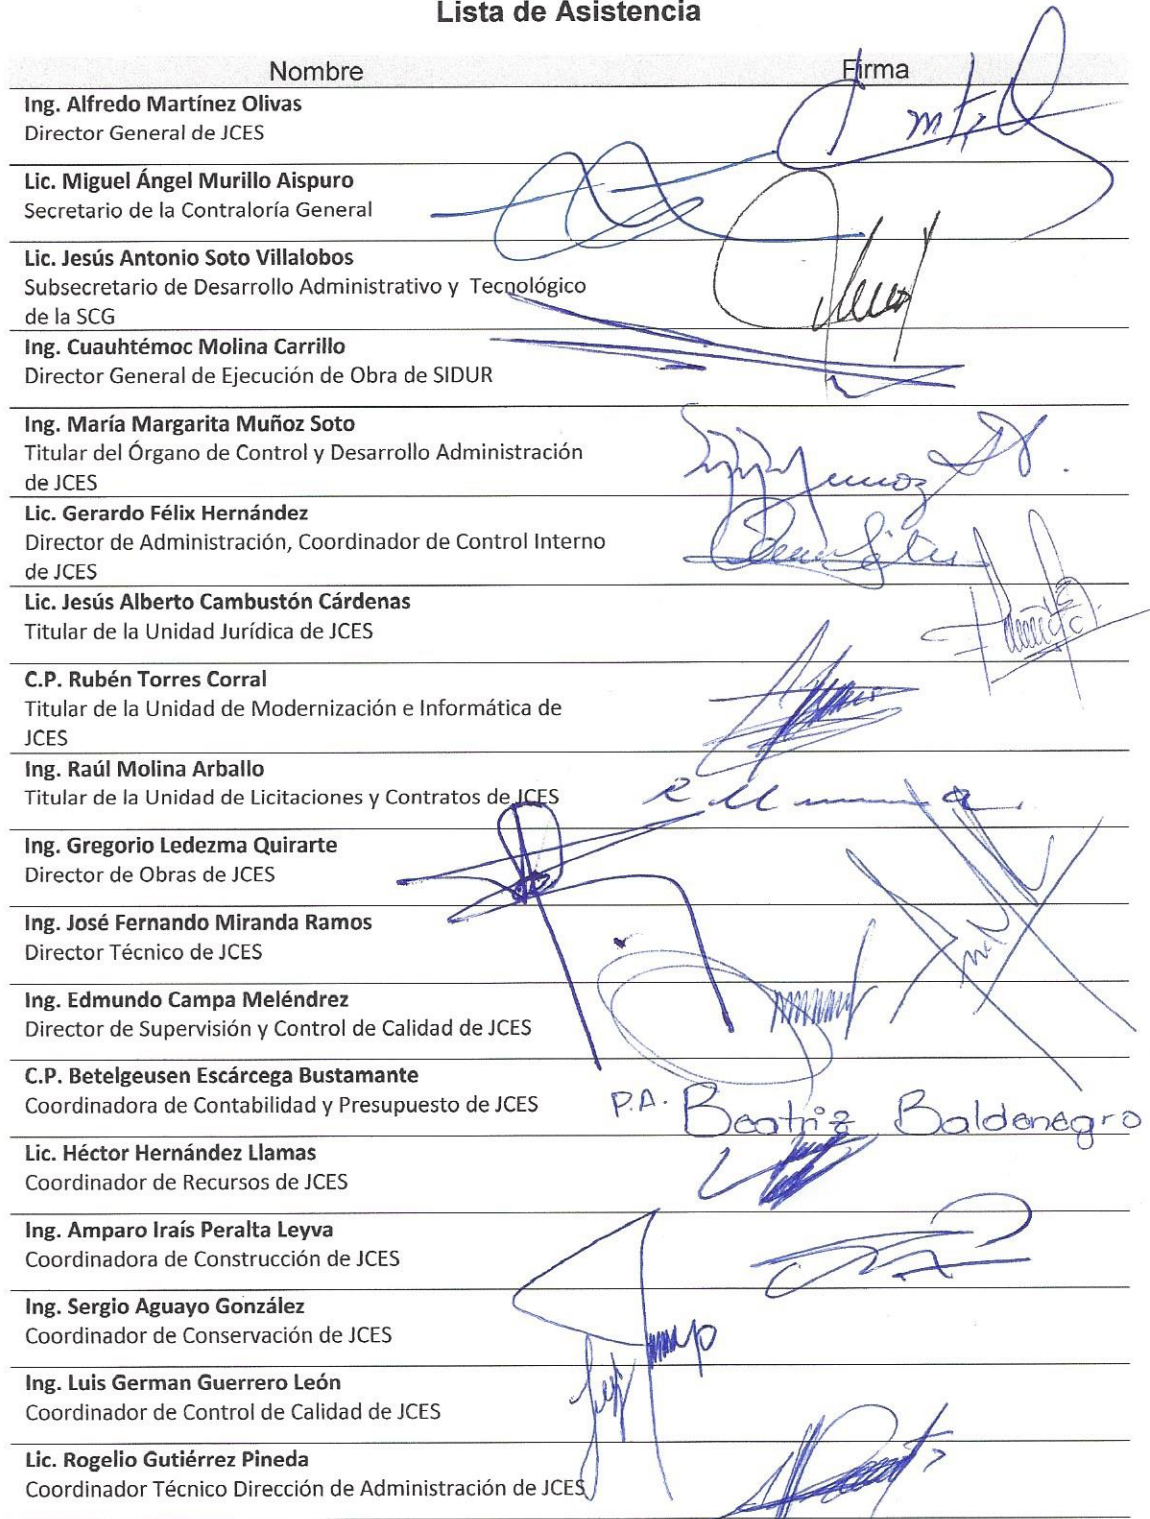 Lista de Asistencia
Nombre Firma
Ing. Alfredo Martínez Olivas
Director General de JCES
Lic. Miguel Ángel Murillo Aispuro
Secretario de la Contraloría General
Lic. Jesús Antonio Soto Villalobos
Subsecretario de Desarrollo Administrativo y Tecnológico
de la SCG
Ing. Cuauhtémoc Molina Carrillo
Director General de Ejecución de Obra de SIDUR
Ing. María Margarita Muñoz Soto
Titular del Órgano de Control y Desarrollo Administración
de JCES
Lic. Gerardo Félix Hernández
Director de Administración, Coordinador de Control Interno
de JCES
Lic. Jesús Alberto Cambustón Cárdenas
Titular de la Unidad Jurídica de JCES
C.P. Rubén Torres Corral
Titular de la Unidad de Modernización e Informática de
JCES
Ing. Raúl Molina Arballo
Titular de la Unidad de Licitaciones y Contratos de JCES
Ing. Gregorio Ledezma Quirarte
Director de Obras de JCES
Ing. José Fernando Miranda Ramos
Director Técnico de JCES
Ing. Edmundo Campa Meléndrez
Director de Supervisión y Control de Calidad de JCES
C.P. Betelgeusen Escárcega Bustamante
Coordinadora de Contabilidad y Presupuesto de JCES
P.A. Beatriz Baldenegro
Lic. Héctor Hernández Llamas
Coordinador de Recursos de JCES
Ing. Amparo Iraís Peralta Leyva
Coordinadora de Construcción de JCES
Ing. Sergio Aguayo González
Coordinador de Conservación de JCES
Ing. Luis German Guerrero León
Coordinador de Control de Calidad de JCES
Lic. Rogelio Gutiérrez Pineda
Coordinador Técnico Dirección de Administración de JCES